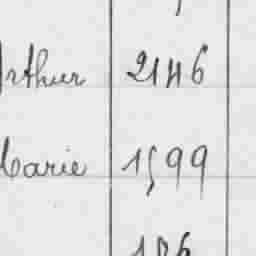 Arthur 2146
Marie 1599